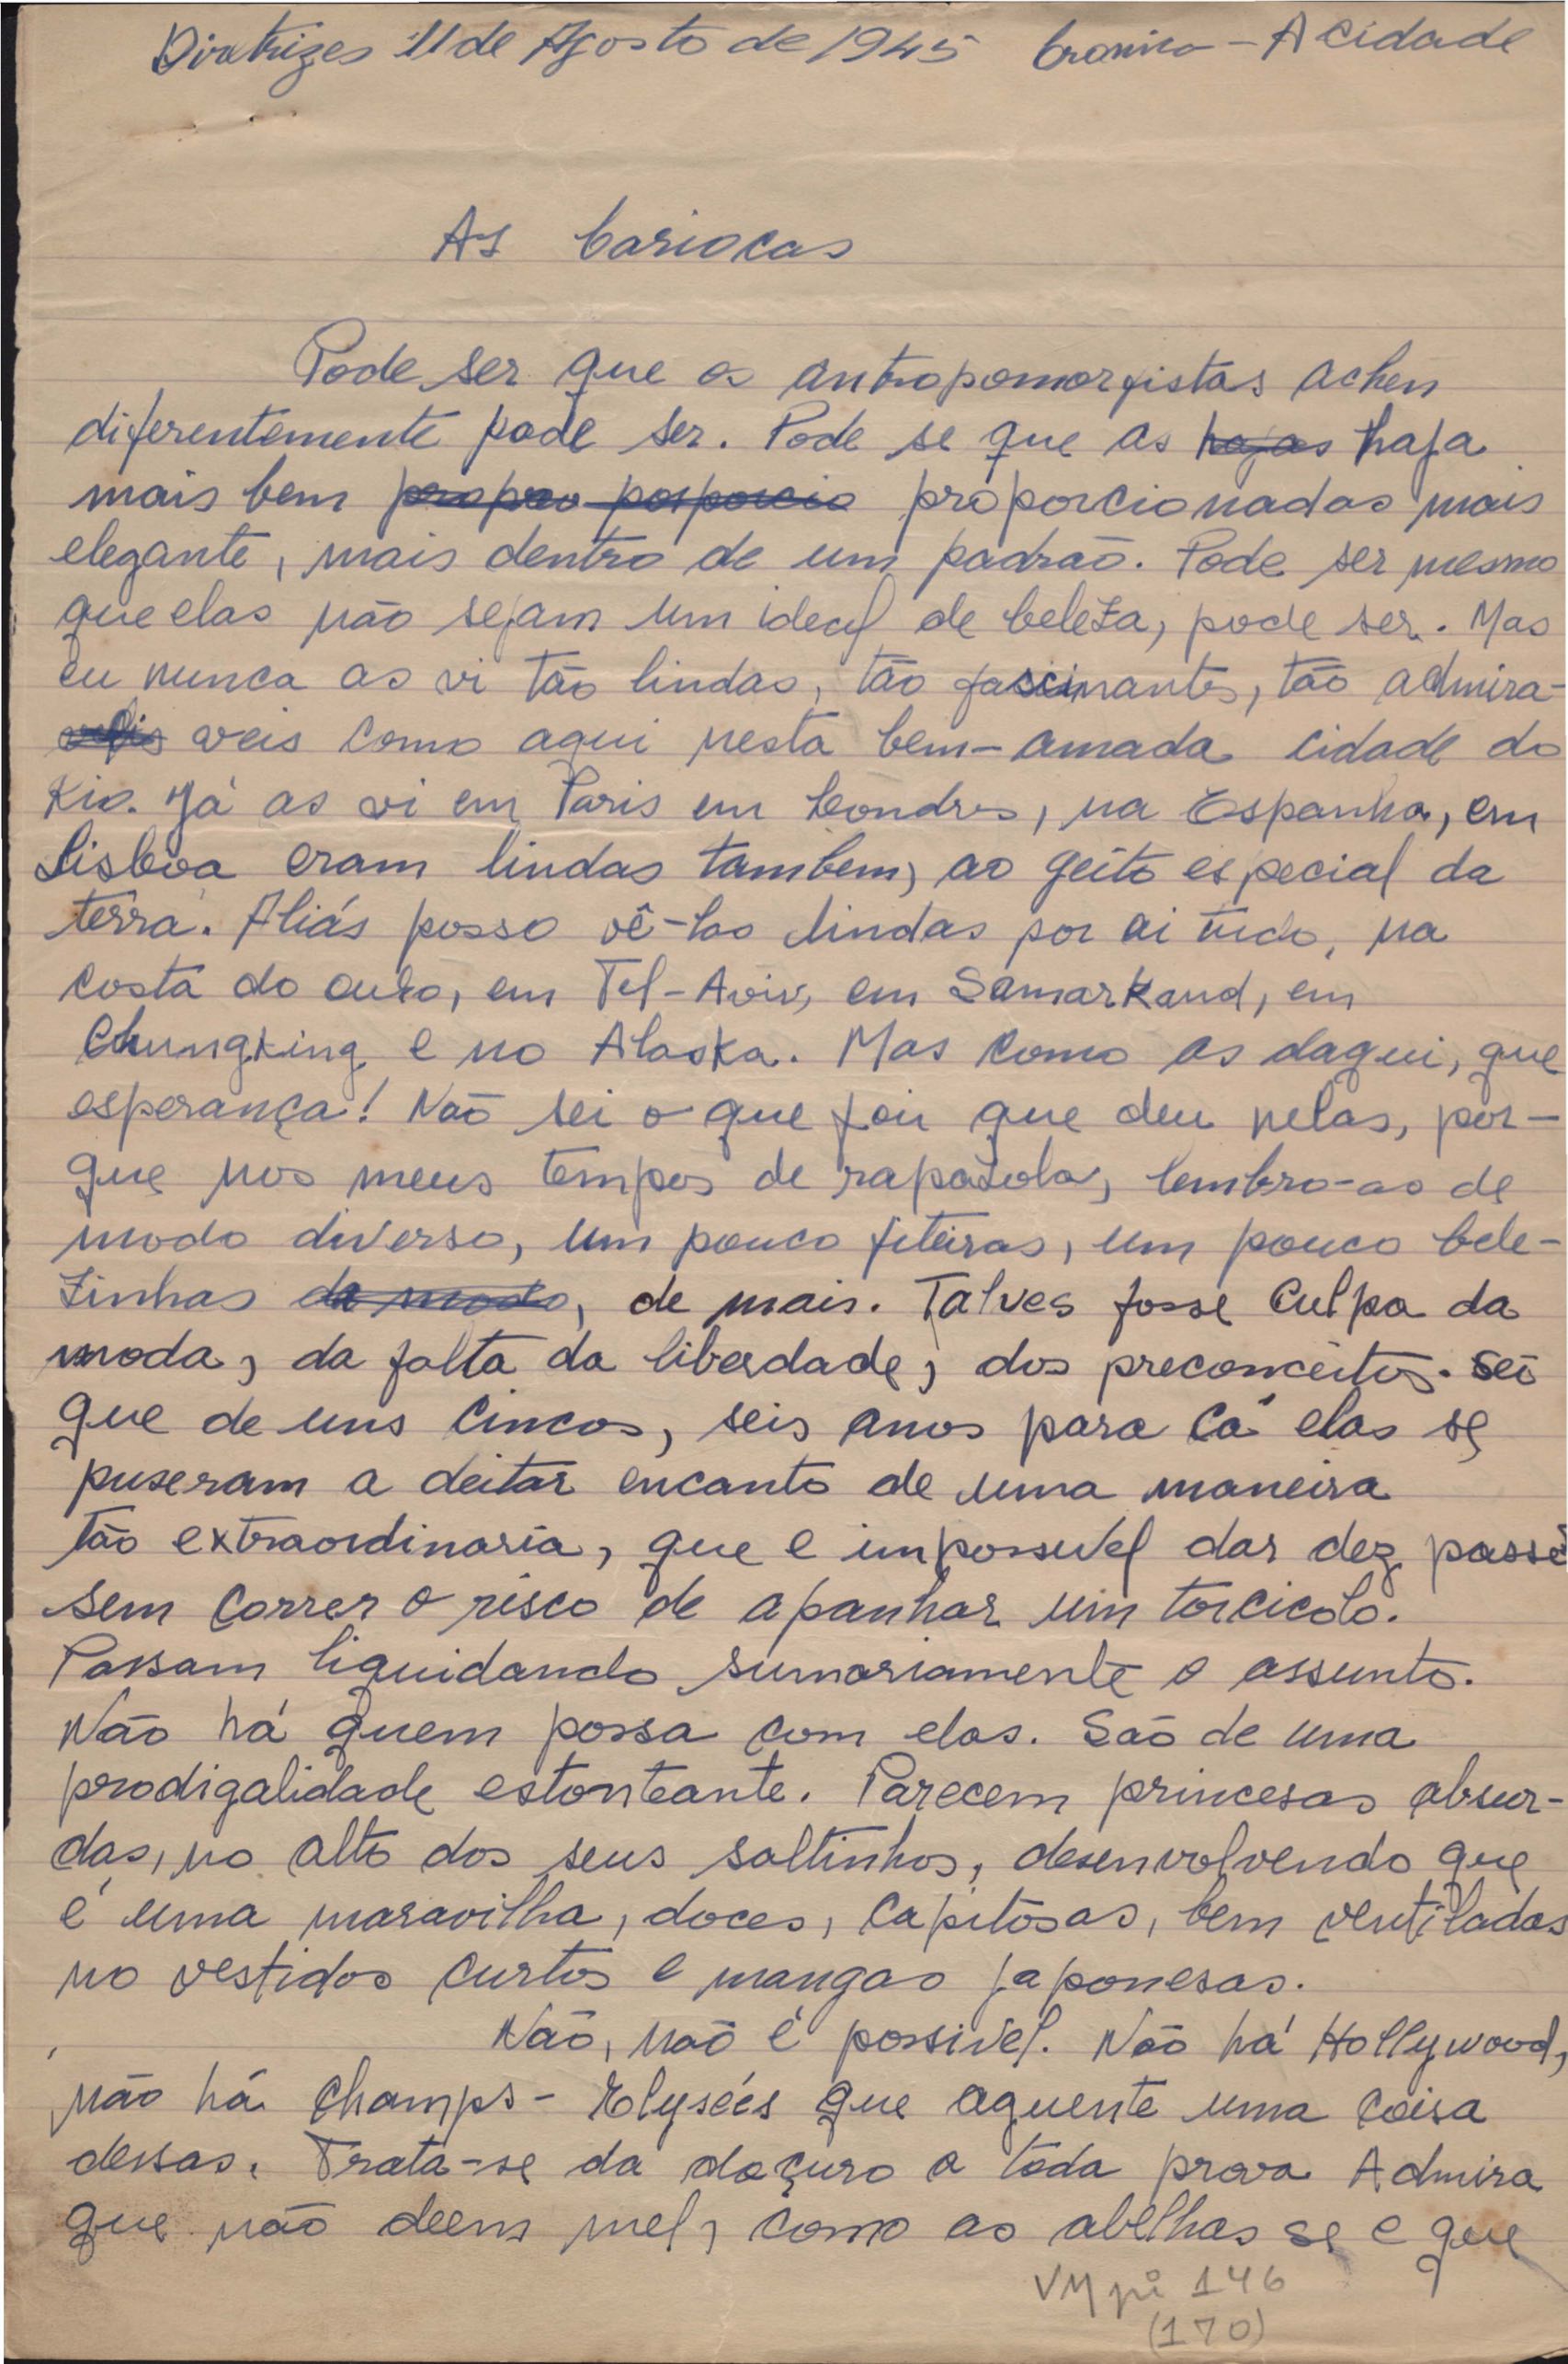 Diretrizes 11 de Agosto de 1945 Cronica - A cidade
As Cariocas
Pode ser que os antropomorfistas achem
diferentemente pode ser. Pode se que as hajas haja
mais bem proporcionadas mais
elegante, mais dentro de um padrão. Pode ser mesmo
que elas não sejam um ideal de beleza, pode ser. Mas
eu nunca as vi tão lindas, tão fascinantes, tão admira-
veis como aqui nesta bem-amada cidade do
Rio. Já as vi em Paris em Londres, na Espanha, em
Lisboa eram lindas tambem, ao geito especial da
terra. Aliás posso vê-las lindas por ai tudo, na
costa do ouro, em Tel-Aviv, em Samarkand, em
Chungking e no Alaska. Mas como as daqui, que
esperança! Não sei o que foi que deu nelas, por-
que nos meus tempos de rapazola, lembro-as de
modo diverso, um pouco fiteiras, um pouco bele-
zinhas de modo, de mais. Talves fosse culpa da
moda, da falta da liberdade, dos preconceitos. Sei
que de uns cincos, seis anos para cá elas se
puseram a deitar encanto de uma maneira
tão extraordinaria, que e impossivel dar dez passo
sem correr o risco de apanhar um torcicolo.
Passam liquidando sumariamente o assunto.
Não há quem possa com elas. São de uma
prodigalidade estonteante. Parecem princesas absur-
das, no alto dos seus saltinhos, desenvolvendo que
é uma maravilha, doces, capitosas, bem ventiladas
no vestidos curtos e mangas japonesas.
Não, não é possivel. Não há Hollywood,
não há Champs-Elyseés que aguente uma coisa
dessas. Trata-se da doçura a toda prova Admira
que não deem mel, como as abelhas se e que
VM pi 146
(170)